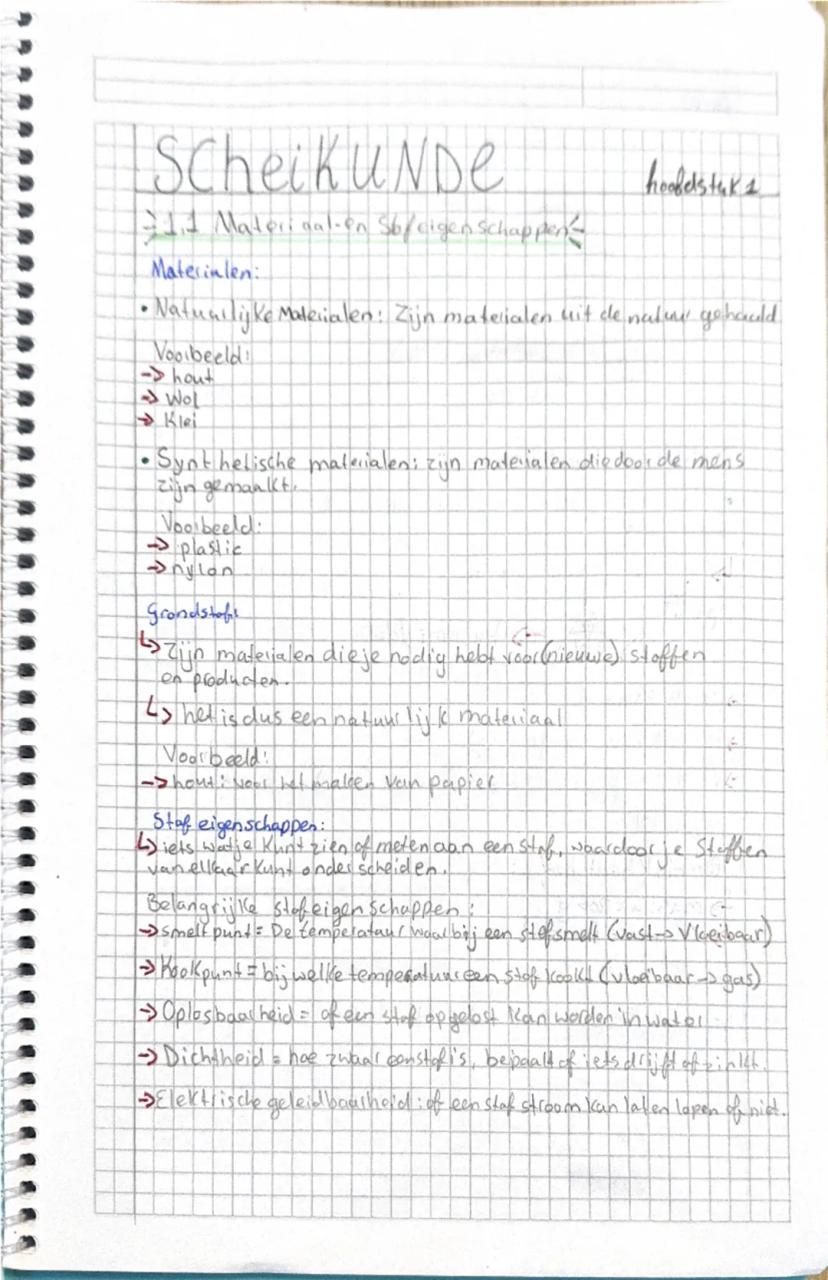 SCHEIKUNDE
hoofdstuk 1
1.1 Materiaal-en Stofeigenschappen
Materialen:
• Natuurlijke Materialen: Zijn materialen uit de natuur gehaald
Voorbeeld:
-> hout
-> Wol
-> Klei
• Synthetische materialen: zijn materialen die door de mens
zijn gemaakt.
Voorbeeld:
-> plastic
-> nylon
Grondstof:
↳ Zijn materialen die je nodig hebt voor (nieuwe) stoffen
en producten.
↳ het is dus een natuurlijk materiaal
Voorbeeld:
-> hout: voor het maken van papier
Stof eigenschappen:
↳ iets wat je kunt zien of meten aan een stof, waardoor je stoffen
van elkaar kunt onderscheiden.
Belangrijke stofeigenschappen:
-> smeltpunt = De temperatuur waarbij een stof smelt (vast -> Vloeibaar)
-> Kookpunt = bij welke temperatuur een stof kookt (vloeibaar -> gas)
-> Oplosbaarheid = of een stof opgelost kan worden in water
-> Dichtheid = hoe zwaar een stof is, bepaalt of iets drijft of zinkt.
-> Elektrische geleidbaarheid: of een stof stroom kan laten lopen of niet.